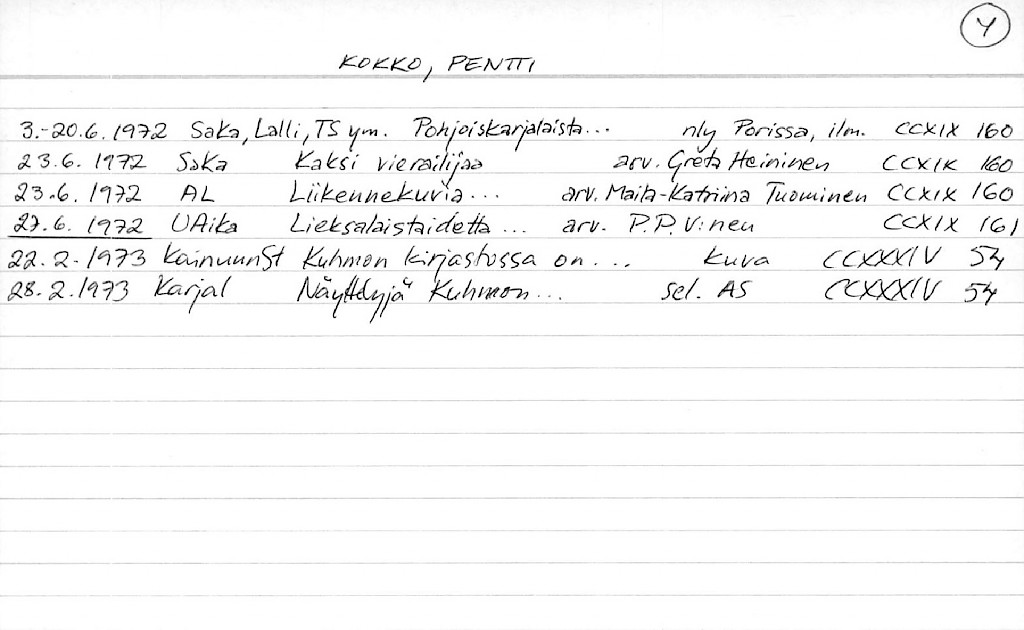 Y
KOKKO, PENTTI
3.-20.6.1972 SaKa, Lalli, TS ym. Pohjoiskarjalaista... nly Porissa, ilm. CCXIX 160
23.6. 1972 SaKa Kaksi vierailijaa arv. Greta Heininen CCXIX 160
23.6. 1972 AL Liikennekuvia... arv. Maila-Katriina Tuominen CCXIX 160
27.6. 1972 UAika Lieksalaistaidetta ... arv. P.P.V:nen CCXIX 161
22.2.1973 KainuunSt Kuhmon kirjastossa on... kuva CCXXXIV 54
28.2.1973 Karjal Näyttelyjä Kuhmon... sel. AS CCXXXIV 54